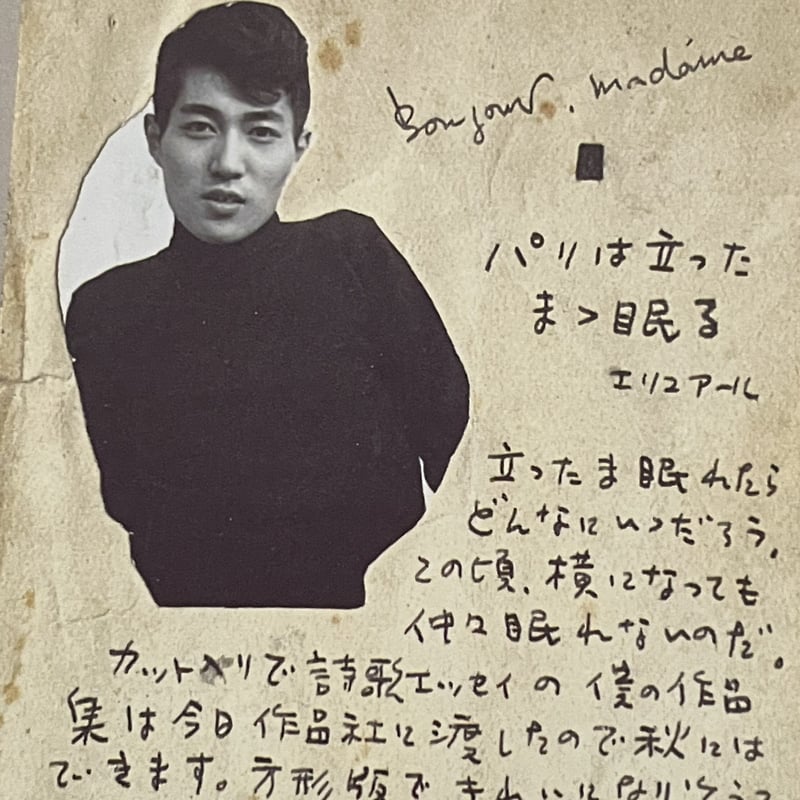 Bonjour, madame
パリは立った
まゝ眠る
エリュアール
立ったま眠れたら
どんなにいゝだろう。
この頃、横になっても
仲々眠れないのだ。
カット入りで詩歌エッセイの僕の作品
集は今日作品社に渡したので秋には
できます。方形版できれいに